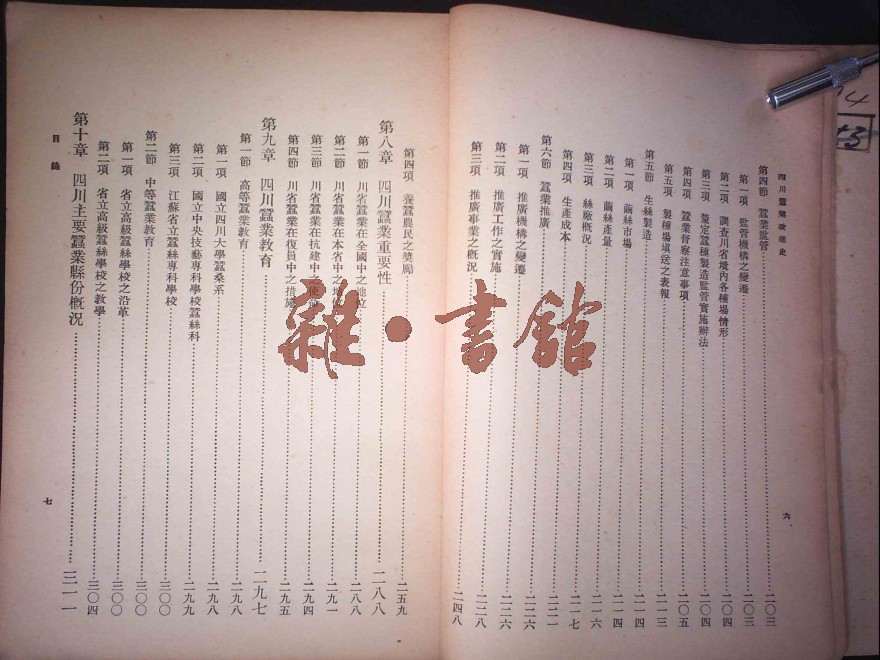 四川蠶業改進史
第四節 蠶業監管 二〇三
第一項 監管機構之變遷 二〇三
第二項 調查川省境內各種場情形 二〇四
第三項 釐定蠶種製造監管實施辦法 二〇四
第四項 蠶業督察注意事項 二〇五
第五項 製種場填送之表報 二一三
第五節 生絲製造 二一四
第一項 繭絲市場 二一四
第二項 繭絲產量 二一四
第三項 絲廠概況 二一六
第四項 生產成本 二一七
第六節 蠶業推廣 二二一
第一項 推廣機構之變遷 二二六
第二項 推廣工作之實施 二二六
第三項 推廣事業之概況 二二八
二四八
六
第四項 養蠶農民之獎勵 二五九
第八章 四川蠶業重要性 二八八
第一節 川省蠶業在全國中之地位 二八八
第二節 川省蠶業在本省中之地位 二九一
第三節 川省蠶業在抗建中之使命 二九四
第四節 川省蠶業在復員中之措施 二九五
第九章 四川蠶業教育 二九七
第一節 高等蠶業教育 二九八
第一項 國立四川大學蠶桑系 二九八
第二項 國立中央技藝專科學校蠶絲科 二九九
第三項 江蘇省立蠶絲專科學校 三〇〇
第二節 中等蠶業教育 三〇〇
第一項 省立高級蠶絲學校之沿革 三〇〇
第二項 省立高級蠶絲學校之教學 三〇四
第十章 四川主要蠶業縣份概況 三一一
目錄
七
雜·書館